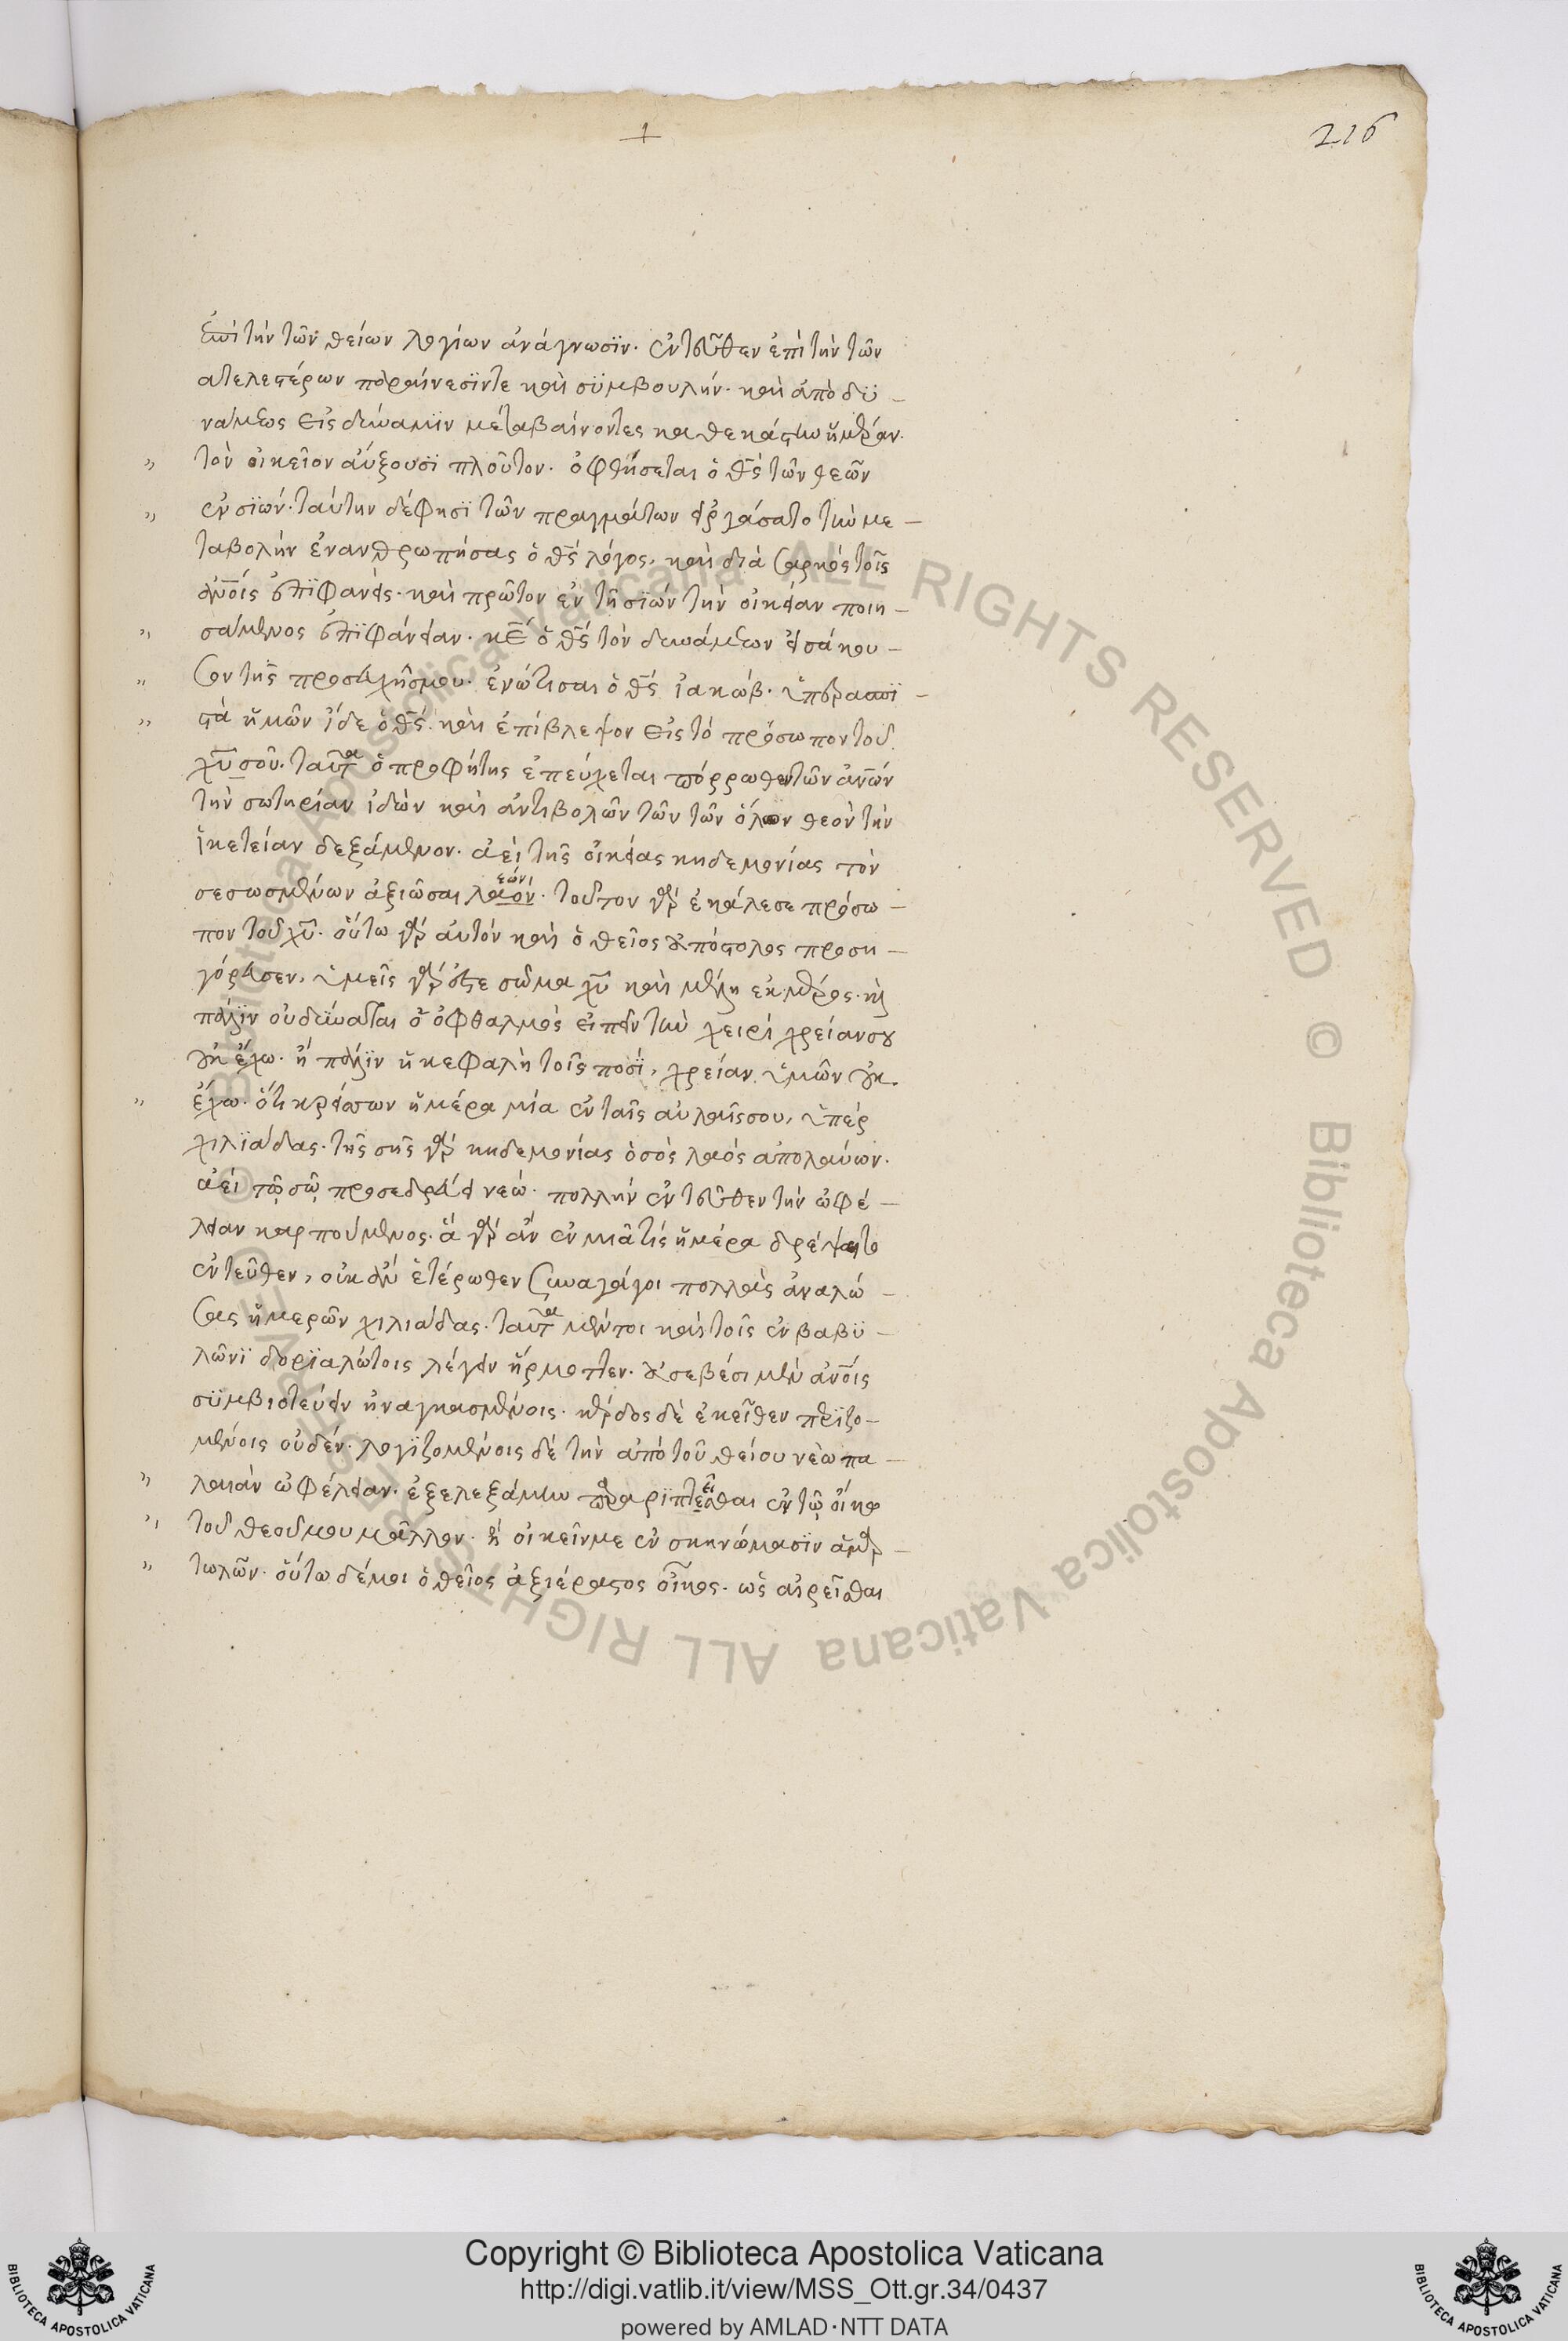 †
216
ἐπὶ τὴν τῶν θείων λογίων ἀνάγνωσϊν. ἐντεῦθεν ἐπὶ τὴν τῶν
ατελεστέρων παραίνεσϊντε καὶ σϋμβουλήν. καὶ ἀπὸ δϋ-
νάμεως εἰς δύναμϊν μεταβαίνοντες καθεκάστην ἡμέραν.
" τὸν οἰκεῖον αὔξουσϊ πλοῦτον. ὀφθήσεται ὁ θς τῶν θεῶν
" ἐν σϊών. ταύτην δέφησϊ τῶν πραγμάτων εἰργάσατο τὴν με-
ταβολὴν ἐνανθρωπήσας ὁ θς λόγος, καὶ διὰ σαρκὸς τοῖς
ἀνοις ἐπϊφανείς. καὶ πρῶτον ἐν τῇ σϊὼν τὴν οἰκείαν ποιη-
" σάμενος ἐπϊφάνειαν. κε ὁ θς τὸν δυνάμεων εἰσάκου-
" σον τῆς προσευχῆσμου. ἐνώτισαι ὁ θς ϊακώβ. ὑπερασπϊ-
" στὰ ἡμῶν ἴδε ὁ θς. καὶ ἐπίβλεψον εἰς τὸ πρόσωπον τοῦ
χυ σοῦ. ταῦτα ὁ προφήτης ἐπεύχεται πόρρωθεν τῶν ἀνων
τὴν σωτηρίαν ἰδὼν καὶ ἀντιβολῶν τῶν τῶν ὅλων θεὸν τὴν
ἱκετείαν δεξάμενον. ἀεὶ τῆς οἰκείας κηδεμονίας τὸν
σεσωσμένων ἀξιῶσαι λαόν. τοῦτον γὰρ ἐκάλεσε πρόσω-
πον τοῦ χυ. οὕτω γὰρ αὐτὸν καὶ ὁ θεῖος ἀπόστολος προση-
γόρευσεν. ὑμεῖς γὰρ ἐστε σῶμα χυ καὶ μέλη ἐκ μέρος. κὶ
πάλϊν οὐ δύναται ὁ ὀφθαλμὸς εἰπεῖν τὴν χειρὶ χρείαν σου
οὐκ ἔχω. ἢ πάλϊν ἡ κεφαλὴ τοῖς ποσϊ, χρείαν ὑμῶν οὐκ
" ἔχω. ὅτι κρείσσων ἡμέρα μία ἐν ταῖς αὐλαῖςσου, ὑπὲρ
χιλϊάδας. τῆς σῆς γὰρ κηδεμονίας ὁ σὸς λαὸς ἀπολαύων.
ἀεὶ τῷ σῷ προσεδρεύει νεώ. πολλὴν ἐντεῦθεν τὴν ὠφέ-
λειαν καρπούμενος. ἃ γὰρ ἂν ἐν μιᾷ τις ἡμέρα δρέψαιτο
ἐντεῦθεν, οὐκ ἂν ἑτέρωθεν συναγάγοι πολλὰς ἀναλώ-
σας ἡμερῶν χιλιάδας. ταῦτα μέντοι καὶ τοῖς ἐν βαβϋ-
λῶνϊ δορϊαλώτοις λέγειν ἥρμοττεν. ἀσεβέσι μὲν ἀνοις
σϋμβιοτεύειν ἠναγκασμένοις. κέρδος δὲ ἐκεῖθεν ποριζο-
μένοις οὐδέν. λογϊζομένοις δὲ τὴν ἀπὸ τοῦ θείου νεὼ πα-
" λαιὰν ὠφέλειαν. ἐξελεξάμην παραρϊπτεῖσθαι ἐν τῷ οἴκω
" τοῦ θεοῦ μου μᾶλλον. ἢ οἰκεῖνμε ἐν σκηνώμασϊν ἁμαρ-
" τωλῶν. οὕτω δέμοι ὁ θεῖος ἀξιέραστος οἶκος. ὡς αἱρεῖσθαι
Copyright © Biblioteca Apostolica Vaticana
http://digi.vatlib.it/view/MSS_Ott.gr.34/0437
powered by AMLAD·NTT DATA
BIBLIOTECA APOSTOLICA VATICANA
BIBLIOTECA APOSTOLICA VATICANA
© Biblioteca Apostolica Vaticana ALL RIGHTS RESERVED © Biblioteca Apostolica Vaticana ALL RIGHTS RESERVED